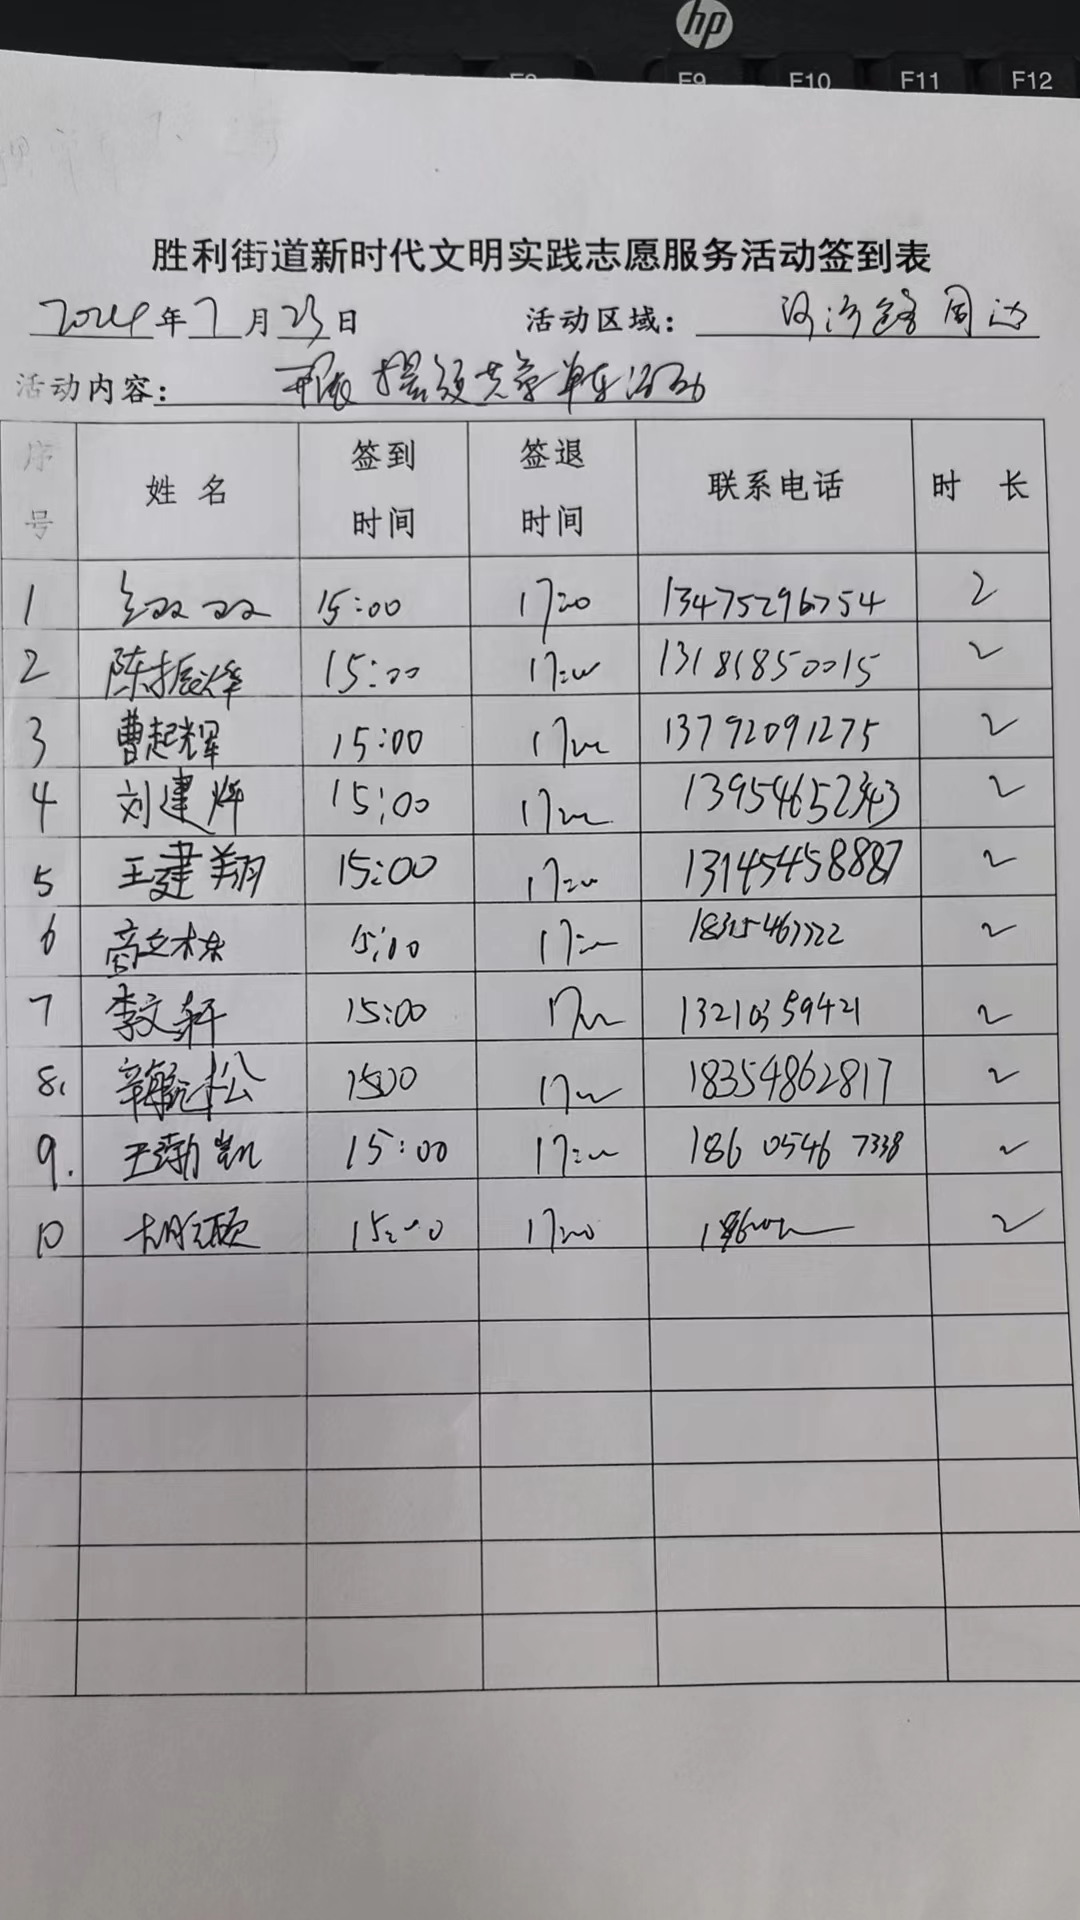 hp
F9 F10 F11 F12
胜利街道新时代文明实践志愿服务活动签到表
2024年7月23日 活动区域: 周边
活动内容: 开展摆放共享单车活动
序号 姓名 签到时间 签退时间 联系电话 时长
1 双双 15:00 17:00 13475296754 2
2 陈振烽 15:00 17:00 13181850015 2
3 曹起辉 15:00 17:00 13792091275 2
4 刘建烨 15:00 17:00 13954652343 2
5 王建翔 15:00 17:00 13145458887 2
6 高文栋 15:00 17:00 2
7 李文轩 15:00 17:00 13210359421 2
8. 辛毓松 1500 17:00 18354862817 2
9. 王渤凯 15:00 17:00 186 0546 7338 2
10 15:00 17:00 2